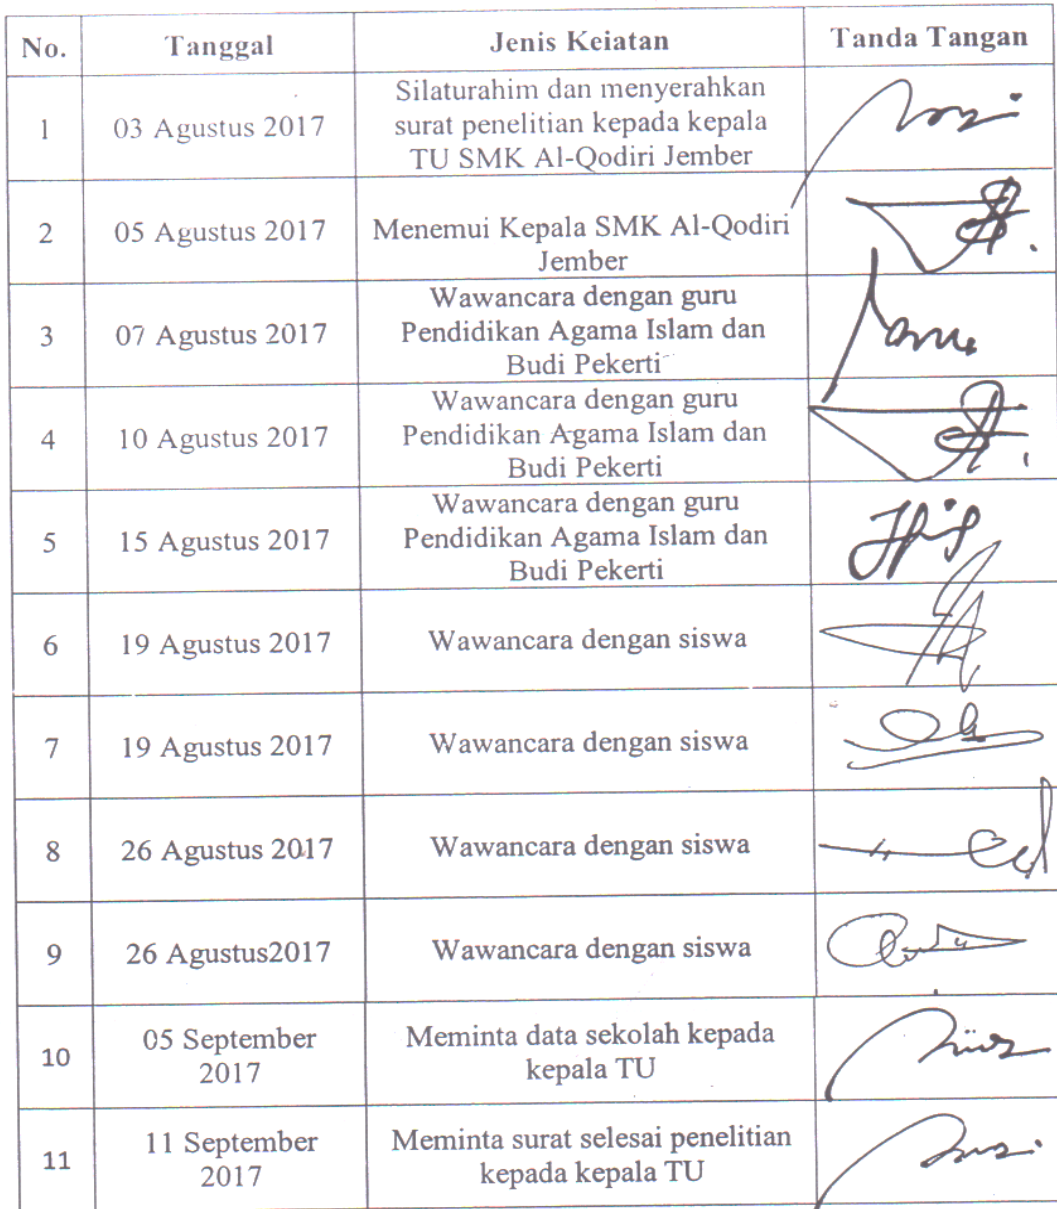 No. Tanggal Jenis Keiatan Tanda Tangan
Silaturahim dan menyerahkan
1 03 Agustus 2017 surat penelitian kepada kepala
TU SMK Al-Qodiri Jember
2 05 Agustus 2017 Menemui Kepala SMK Al-Qodiri
Jember
Wawancara dengan guru
3 07 Agustus 2017 Pendidikan Agama Islam dan
Budi Pekerti
Wawancara dengan guru
4 10 Agustus 2017 Pendidikan Agama Islam dan
Budi Pekerti
Wawancara dengan guru
5 15 Agustus 2017 Pendidikan Agama Islam dan
Budi Pekerti
6 19 Agustus 2017 Wawancara dengan siswa
7 19 Agustus 2017 Wawancara dengan siswa
8 26 Agustus 2017 Wawancara dengan siswa
9 26 Agustus2017 Wawancara dengan siswa
10 05 September
2017
Meminta data sekolah kepada
kepala TU
11 11 September
2017
Meminta surat selesai penelitian
kepada kepala TU